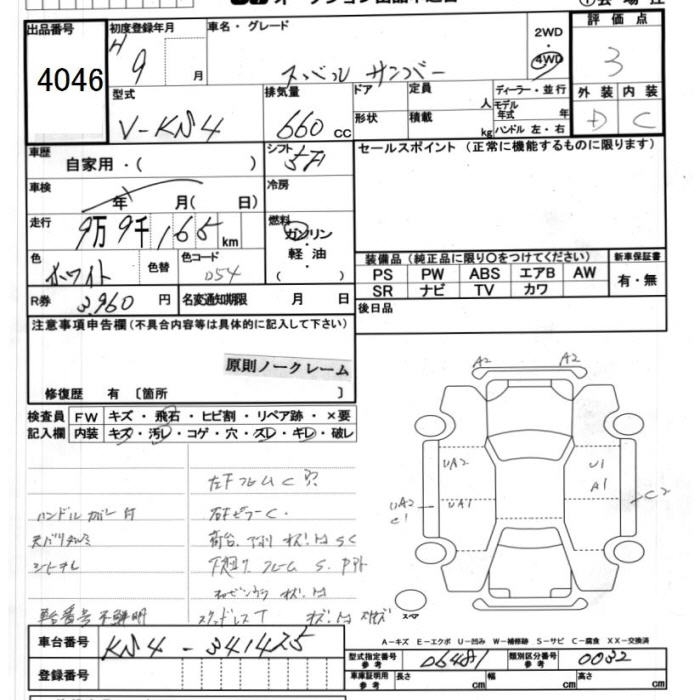 出品番号
4046
初度登録年月
H 9 月
車名・グレード
スバル サンバー
2WD
4WD
評価点
3
外装 内装
D C
型式
V-KS4
排気量
660 CC
ドア
形状
定員 人
積載 kg
ディーラー・並行
モデル年式 年
ハンドル 左・右
車歴
自家用・( )
シフト
5F
セールスポイント (正常に機能するものに限ります)
車検
年 月( 日)
冷房
走行
9万9千165 km
燃料
ガソリン
・
軽油
( )
色
ホワイト
色替
色コード
054
装備品 (純正品に限り〇をつけてください)
新車保証書
PS PW ABS エアB AW
有・無
SR ナビ TV カワ
R券 3,960 円
名変通知期限 月 日
後日品
注意事項申告欄(不具合内容等は具体的に記入して下さい)
原則ノークレーム
修復歴 有 〔箇所 〕
検査員
記入欄
FW キズ・飛石・ヒビ割・リペア跡・×要
内装 キズ・汚レ・コゲ・穴・スレ・キレ・破レ
左下フレムC穴
ハンドル
右ピラーC.
荷台、下廻りキズ凹SC
シートキレ
下廻り、フレームS.
車台番号不鮮明
スタッドレスT
A2
A2
UA2
U1
A1
UA2
C1
UA1
C2
スペア
車台番号
KS4-341425
A-キズ E-エクボ U-凹み W-補修跡 S-サビ C-腐食 XX-交換済
型式指定番号
参考
06481
類別区分番号
参考
0032
登録番号
車庫証明用
参考
長さ cm
幅 cm
高さ cm